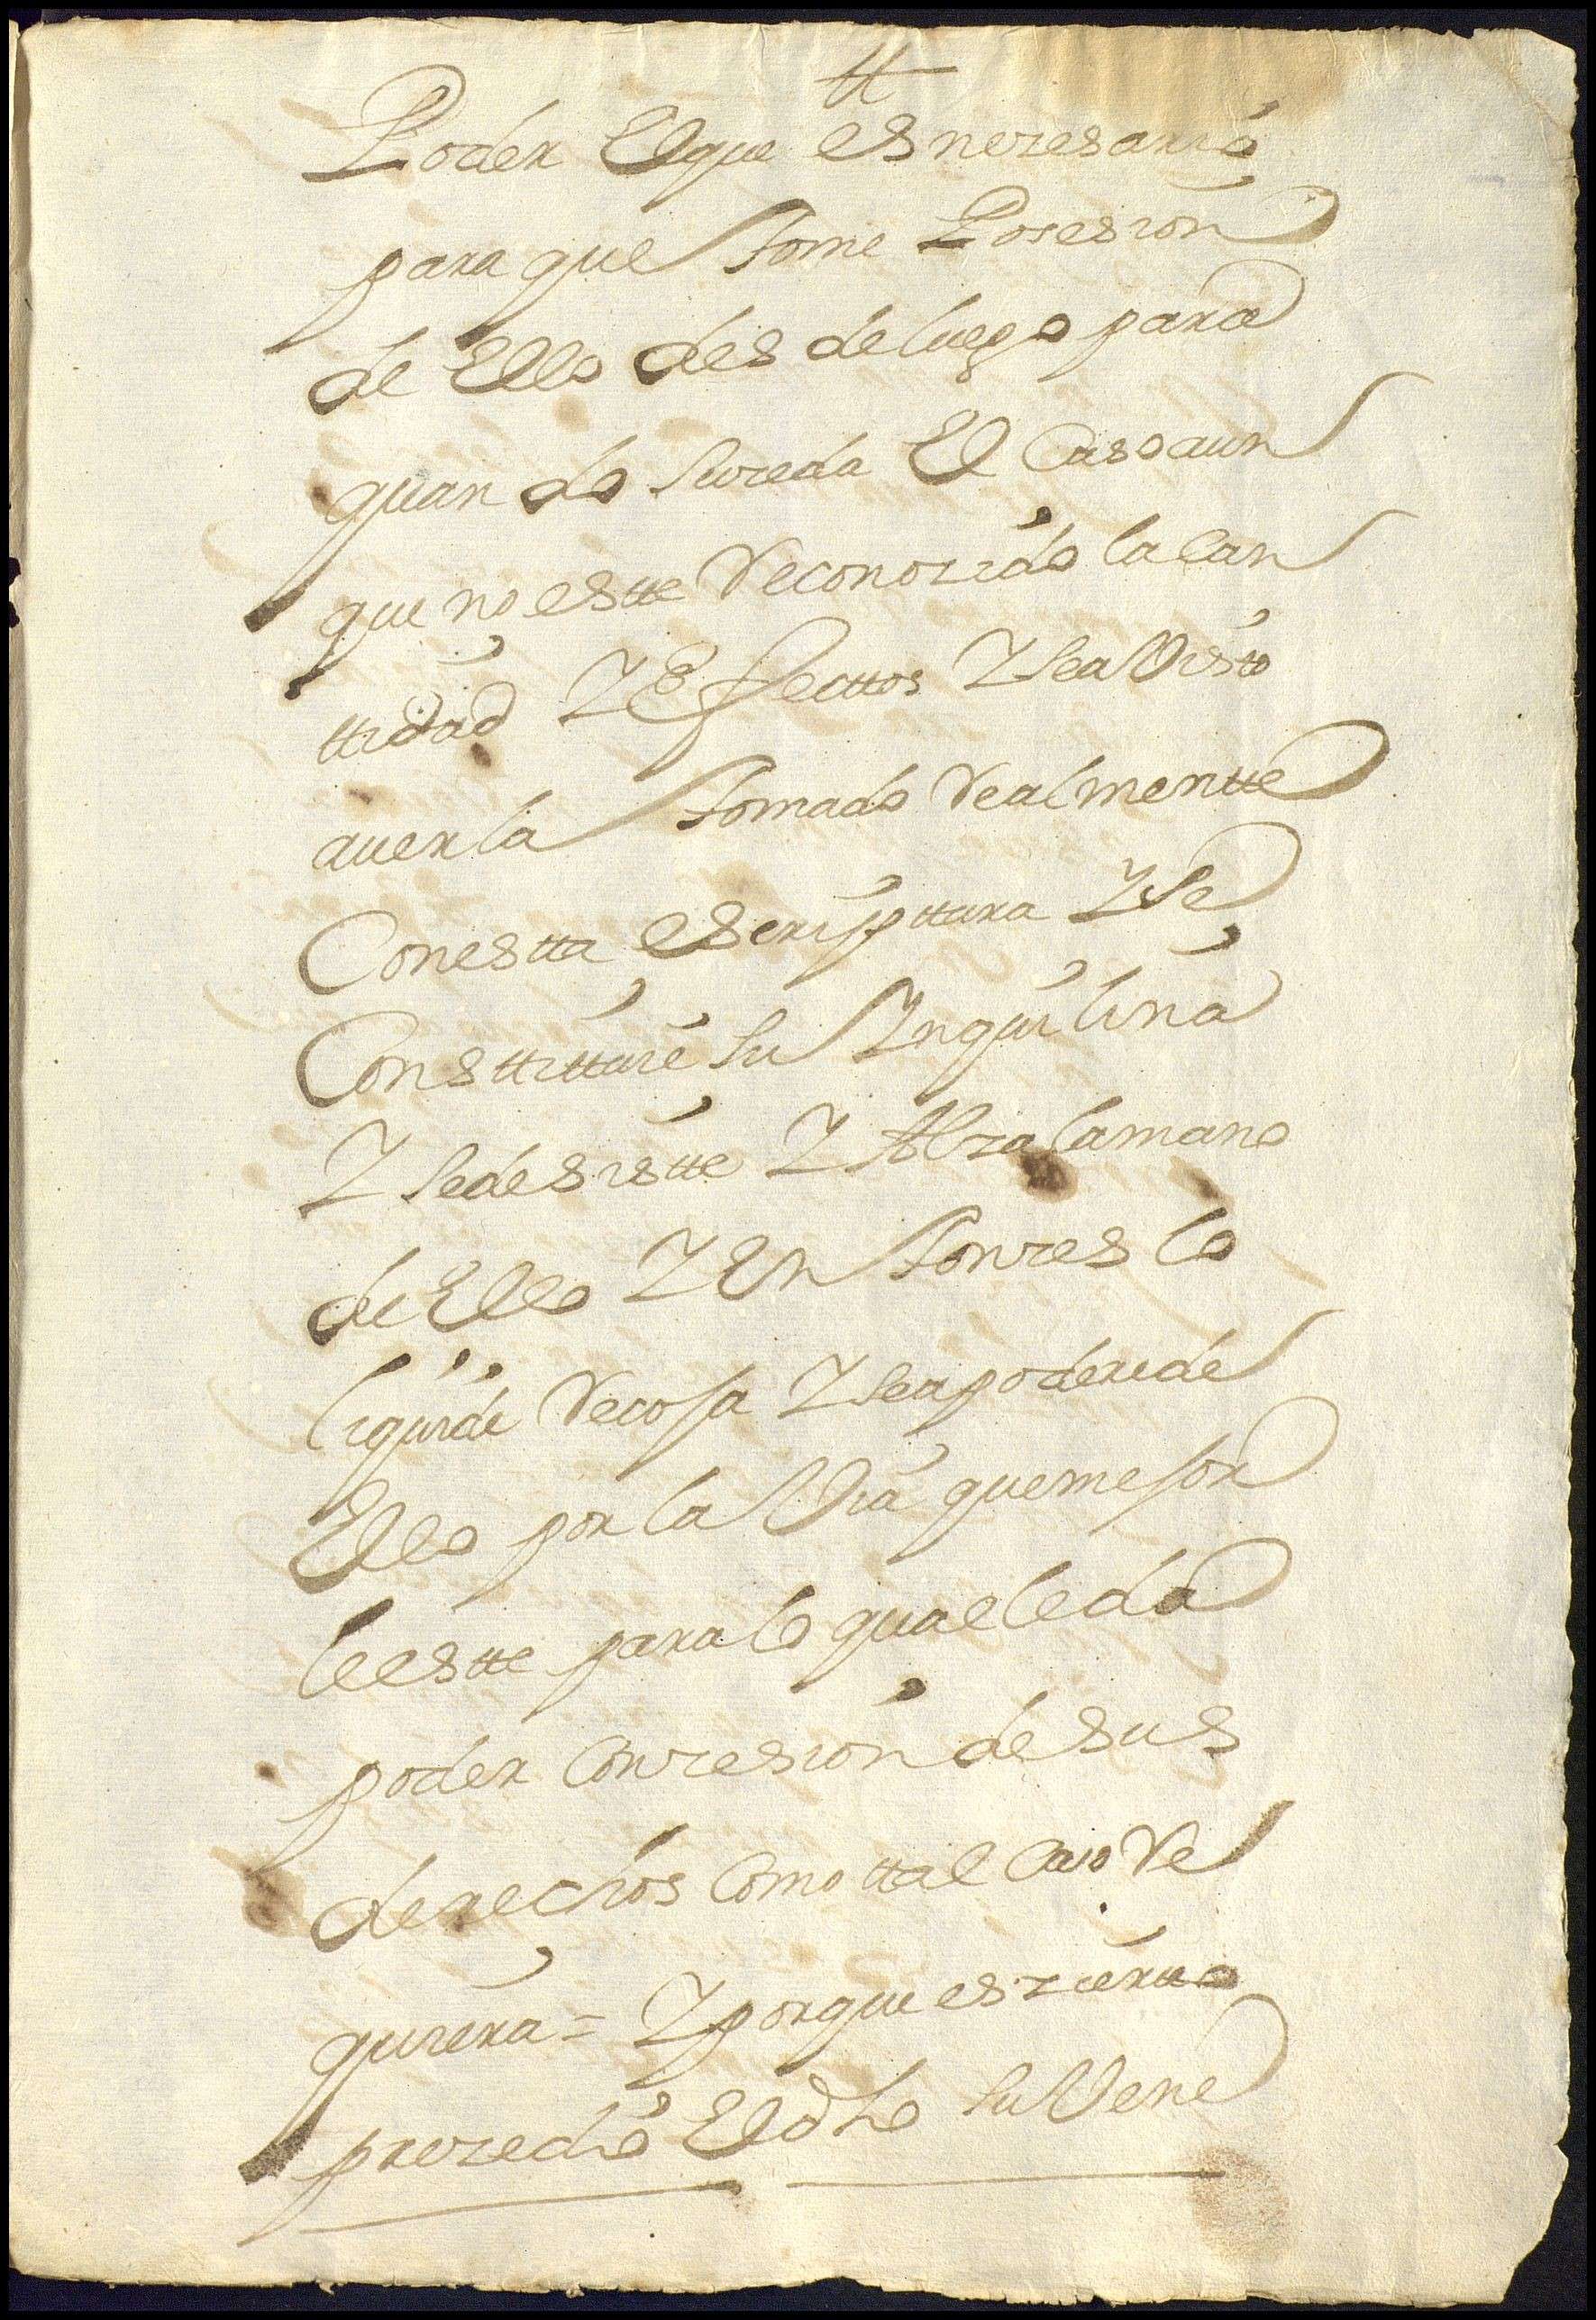 Poder El que es nezesario
para que tome Posesion
de Ello des de luego para
quan do suzeda El Caso aun
que no estte Reconozido la can
ttidad Y Efecttos Y sea Visto
auerla tomado Realmentte
Con estta escripttura Y se
Consttittuie su Ynquilina
Y se desistte Y Alza la mano
de Ello Y En tonzes lo
liquide Recoja Y se apodere de
Ello por la Via que mejor
le estte para lo qual le da
poder Conzesion de sus
derechos Como ttal Caso Re
quiera = Y porque es zierto
prozedio El dho su Vene